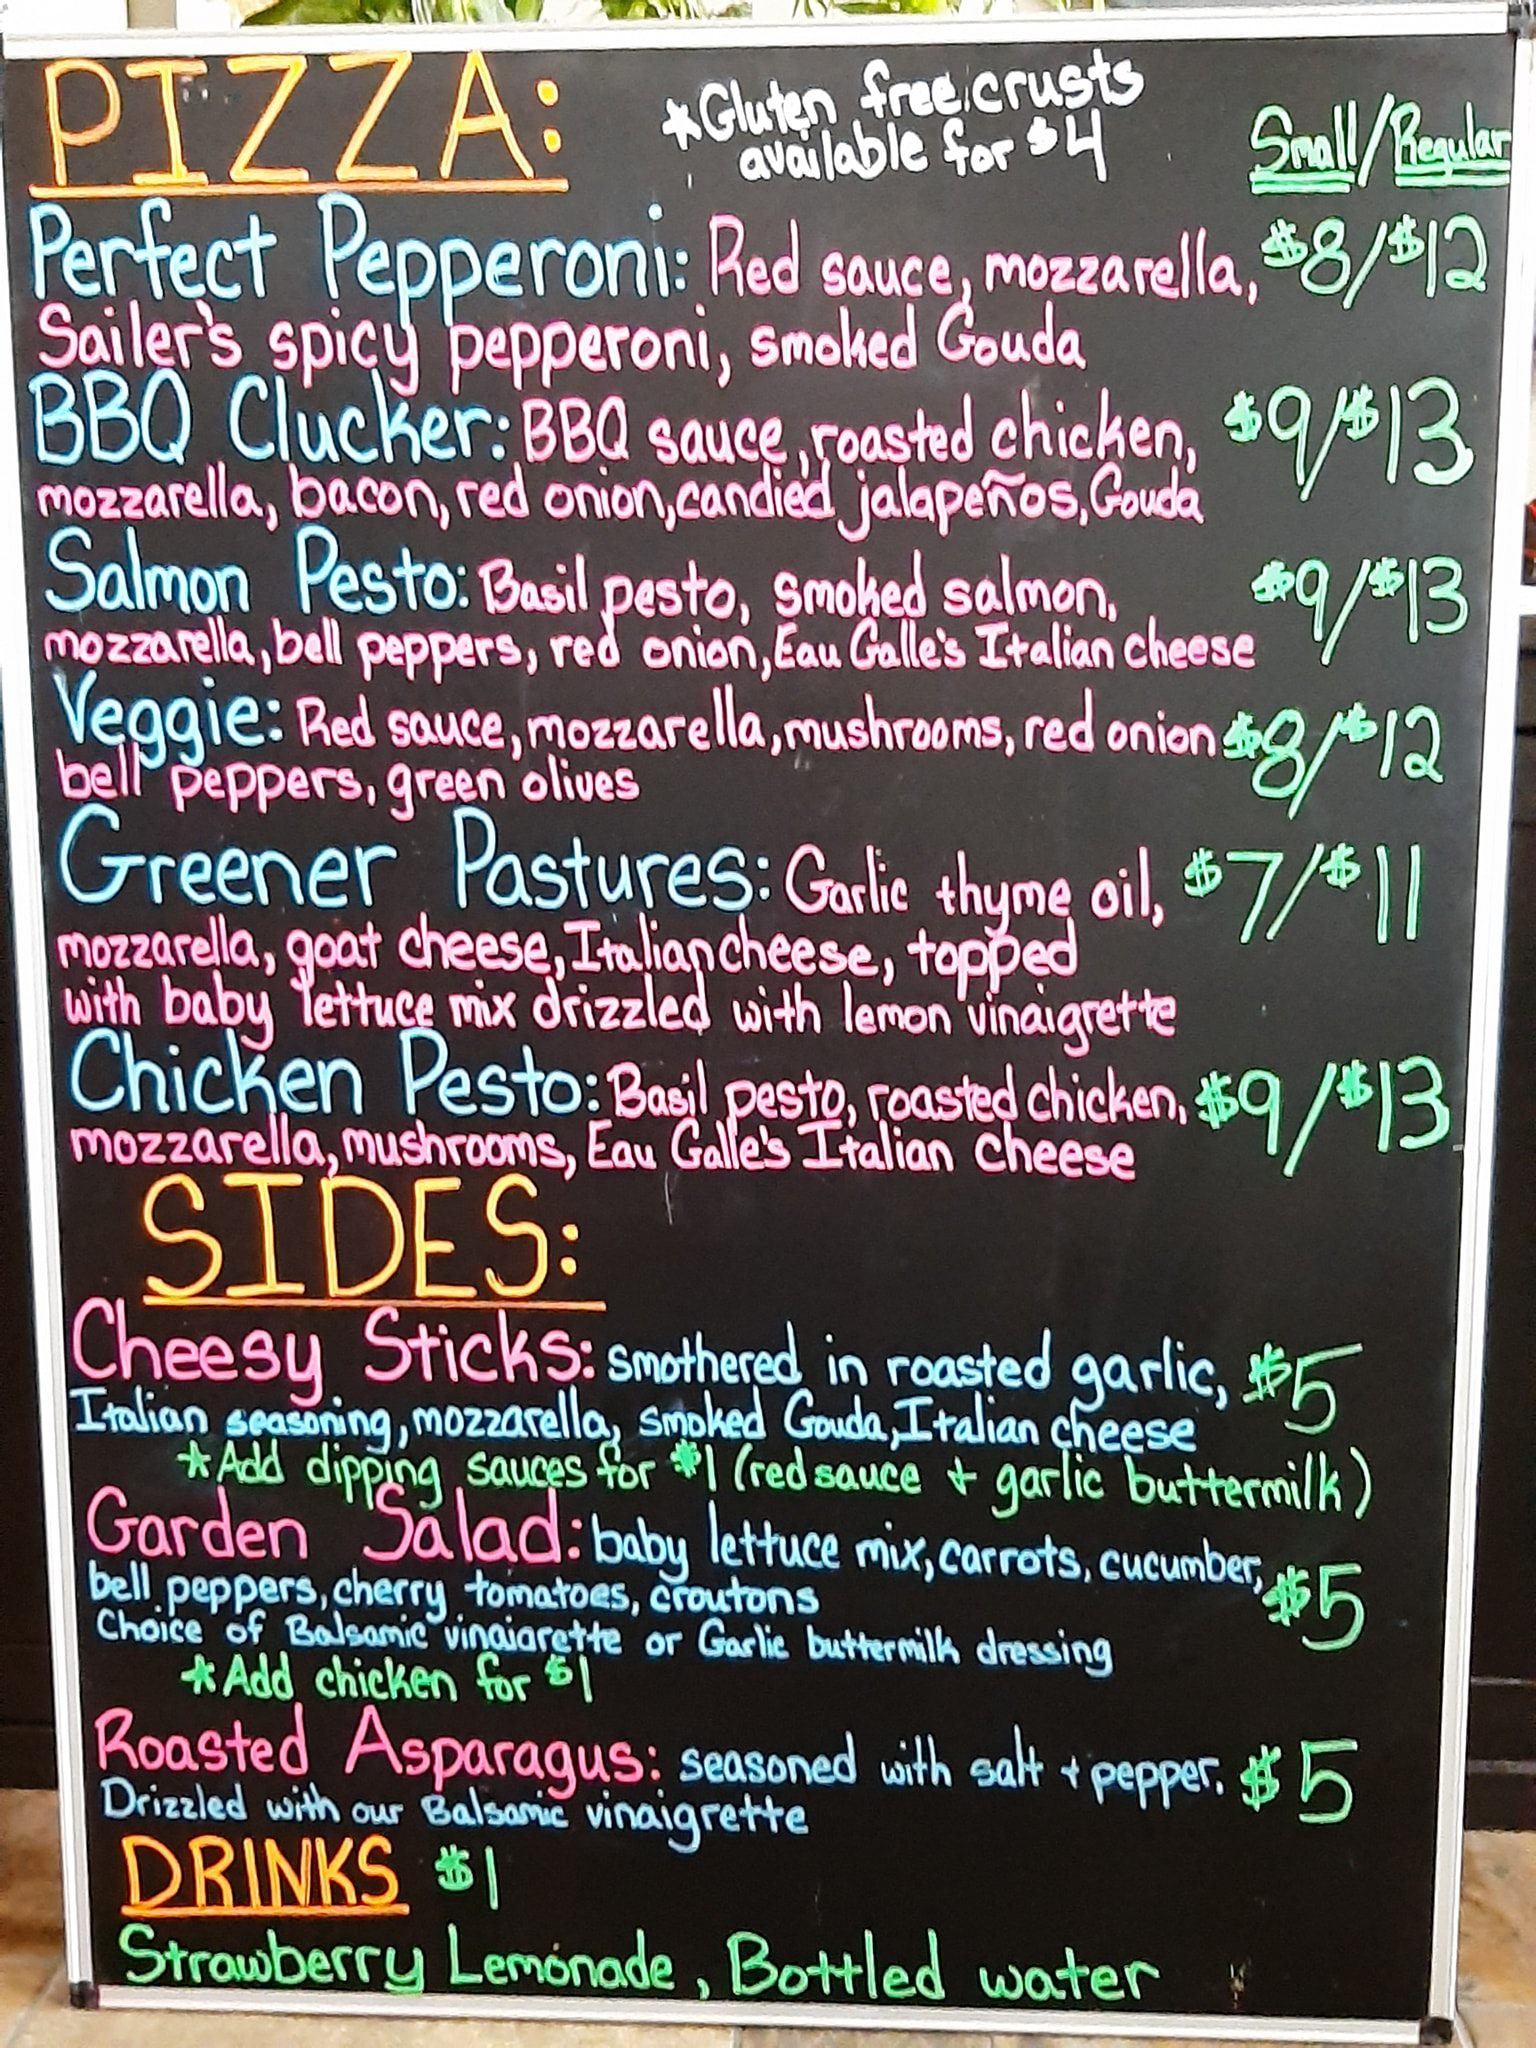 PIZZA:
*Gluten free crusts
available for $4
Small/Regular
Perfect Pepperoni: Red sauce, mozzarella, $8/$12
Sailer's spicy pepperoni, smoked Gouda
BBQ Clucker: BBQ sauce, roasted chicken, $9/$13
mozzarella, bacon, red onion, candied jalapeños, Gouda
Salmon Pesto: Basil pesto, smoked salmon, $9/$13
mozzarella, bell peppers, red onion, Eau Galle's Italian cheese
Veggie: Red sauce, mozzarella, mushrooms, red onion $8/$12
bell peppers, green olives
Greener Pastures: Garlic thyme oil, $7/$11
mozzarella, goat cheese, Italian cheese, topped
with baby lettuce mix drizzled with lemon vinaigrette
Chicken Pesto: Basil pesto, roasted chicken, $9/$13
mozzarella, mushrooms, Eau Galle's Italian cheese
SIDES:
Cheesy Sticks: smothered in roasted garlic, $5
Italian seasoning, mozzarella, smoked Gouda, Italian cheese
*Add dipping sauces for $1 (red sauce + garlic buttermilk)
Garden Salad: baby lettuce mix, carrots, cucumber, $5
bell peppers, cherry tomatoes, croutons
Choice of Balsamic vinaiarette or Garlic buttermilk dressing
*Add chicken for $1
Roasted Asparagus: seasoned with salt + pepper. $5
Drizzled with our Balsamic vinaigrette
DRINKS $1
Strawberry Lemonade, Bottled water